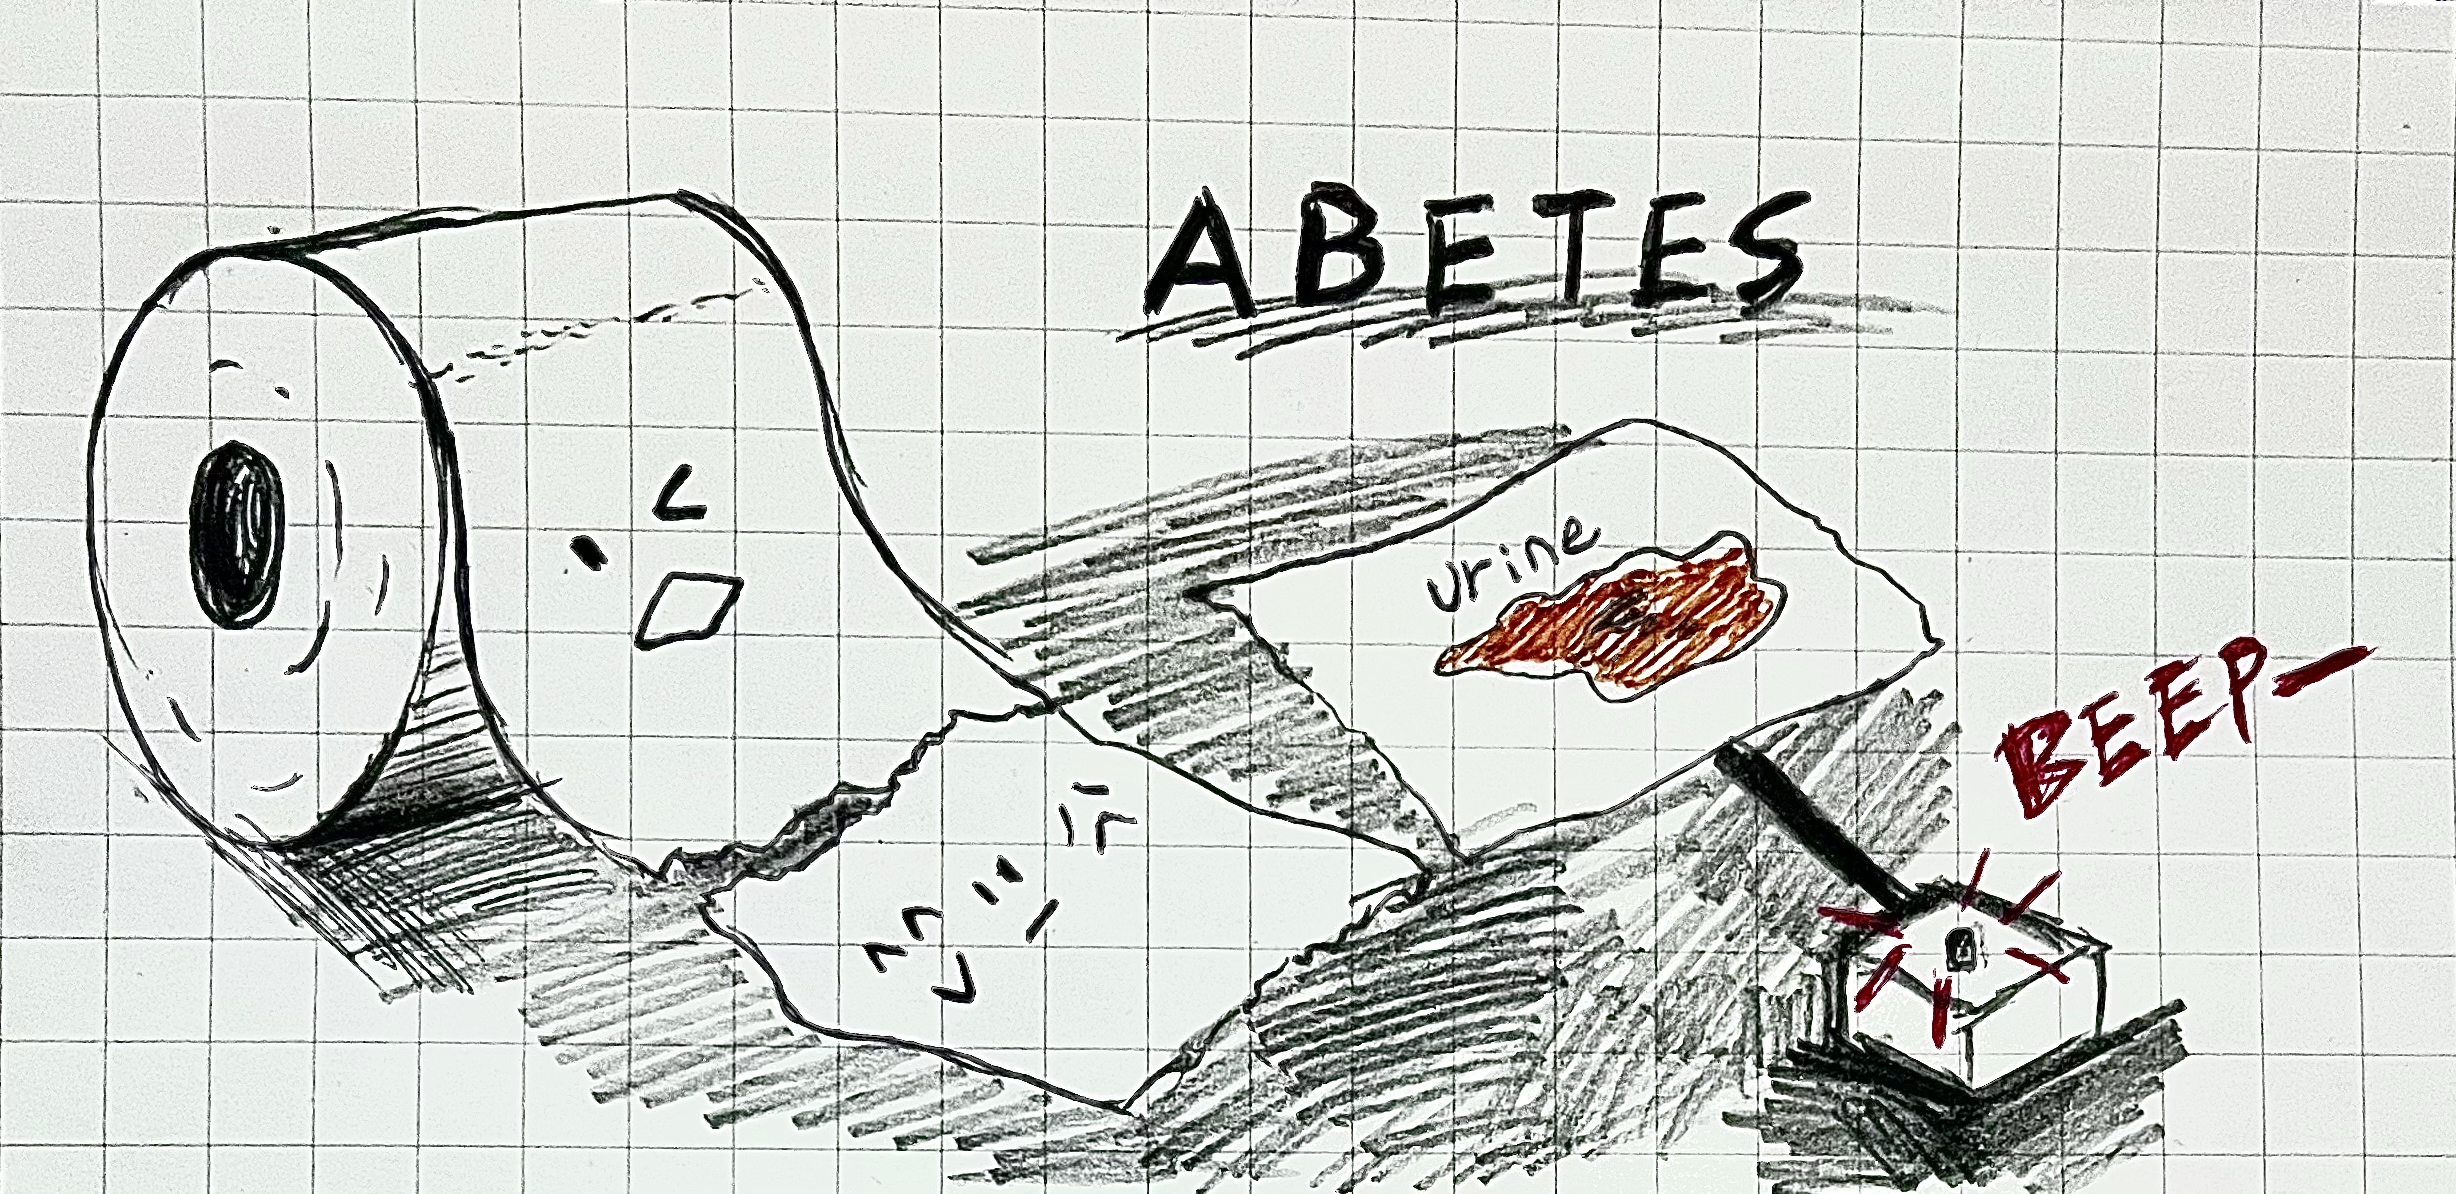 ABETES
urine
BEEP-